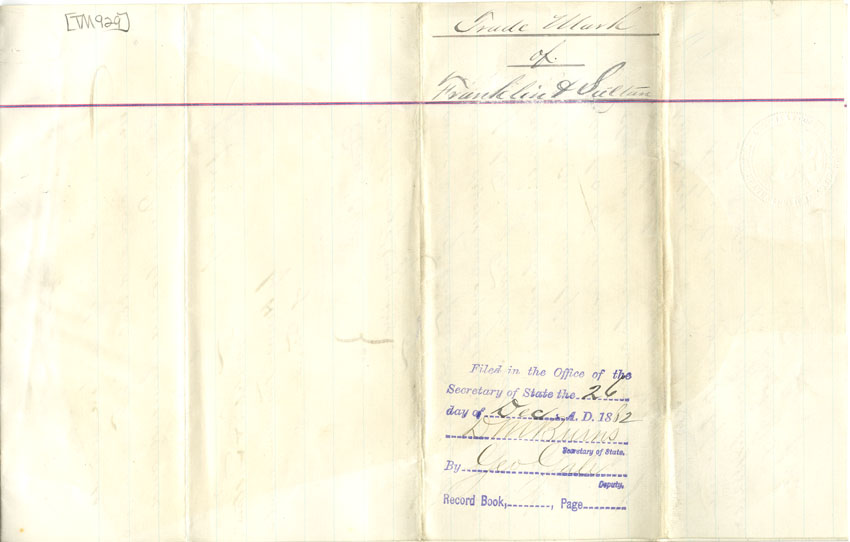 [TM929]
Trade Mark
of
Franklin & Sultan
Filed in the Office of the
Secretary of State the 26
day of Dec. A. D. 1882
D M Burns
Secretary of State.
By Geo
Deputy.
Record Book, , Page